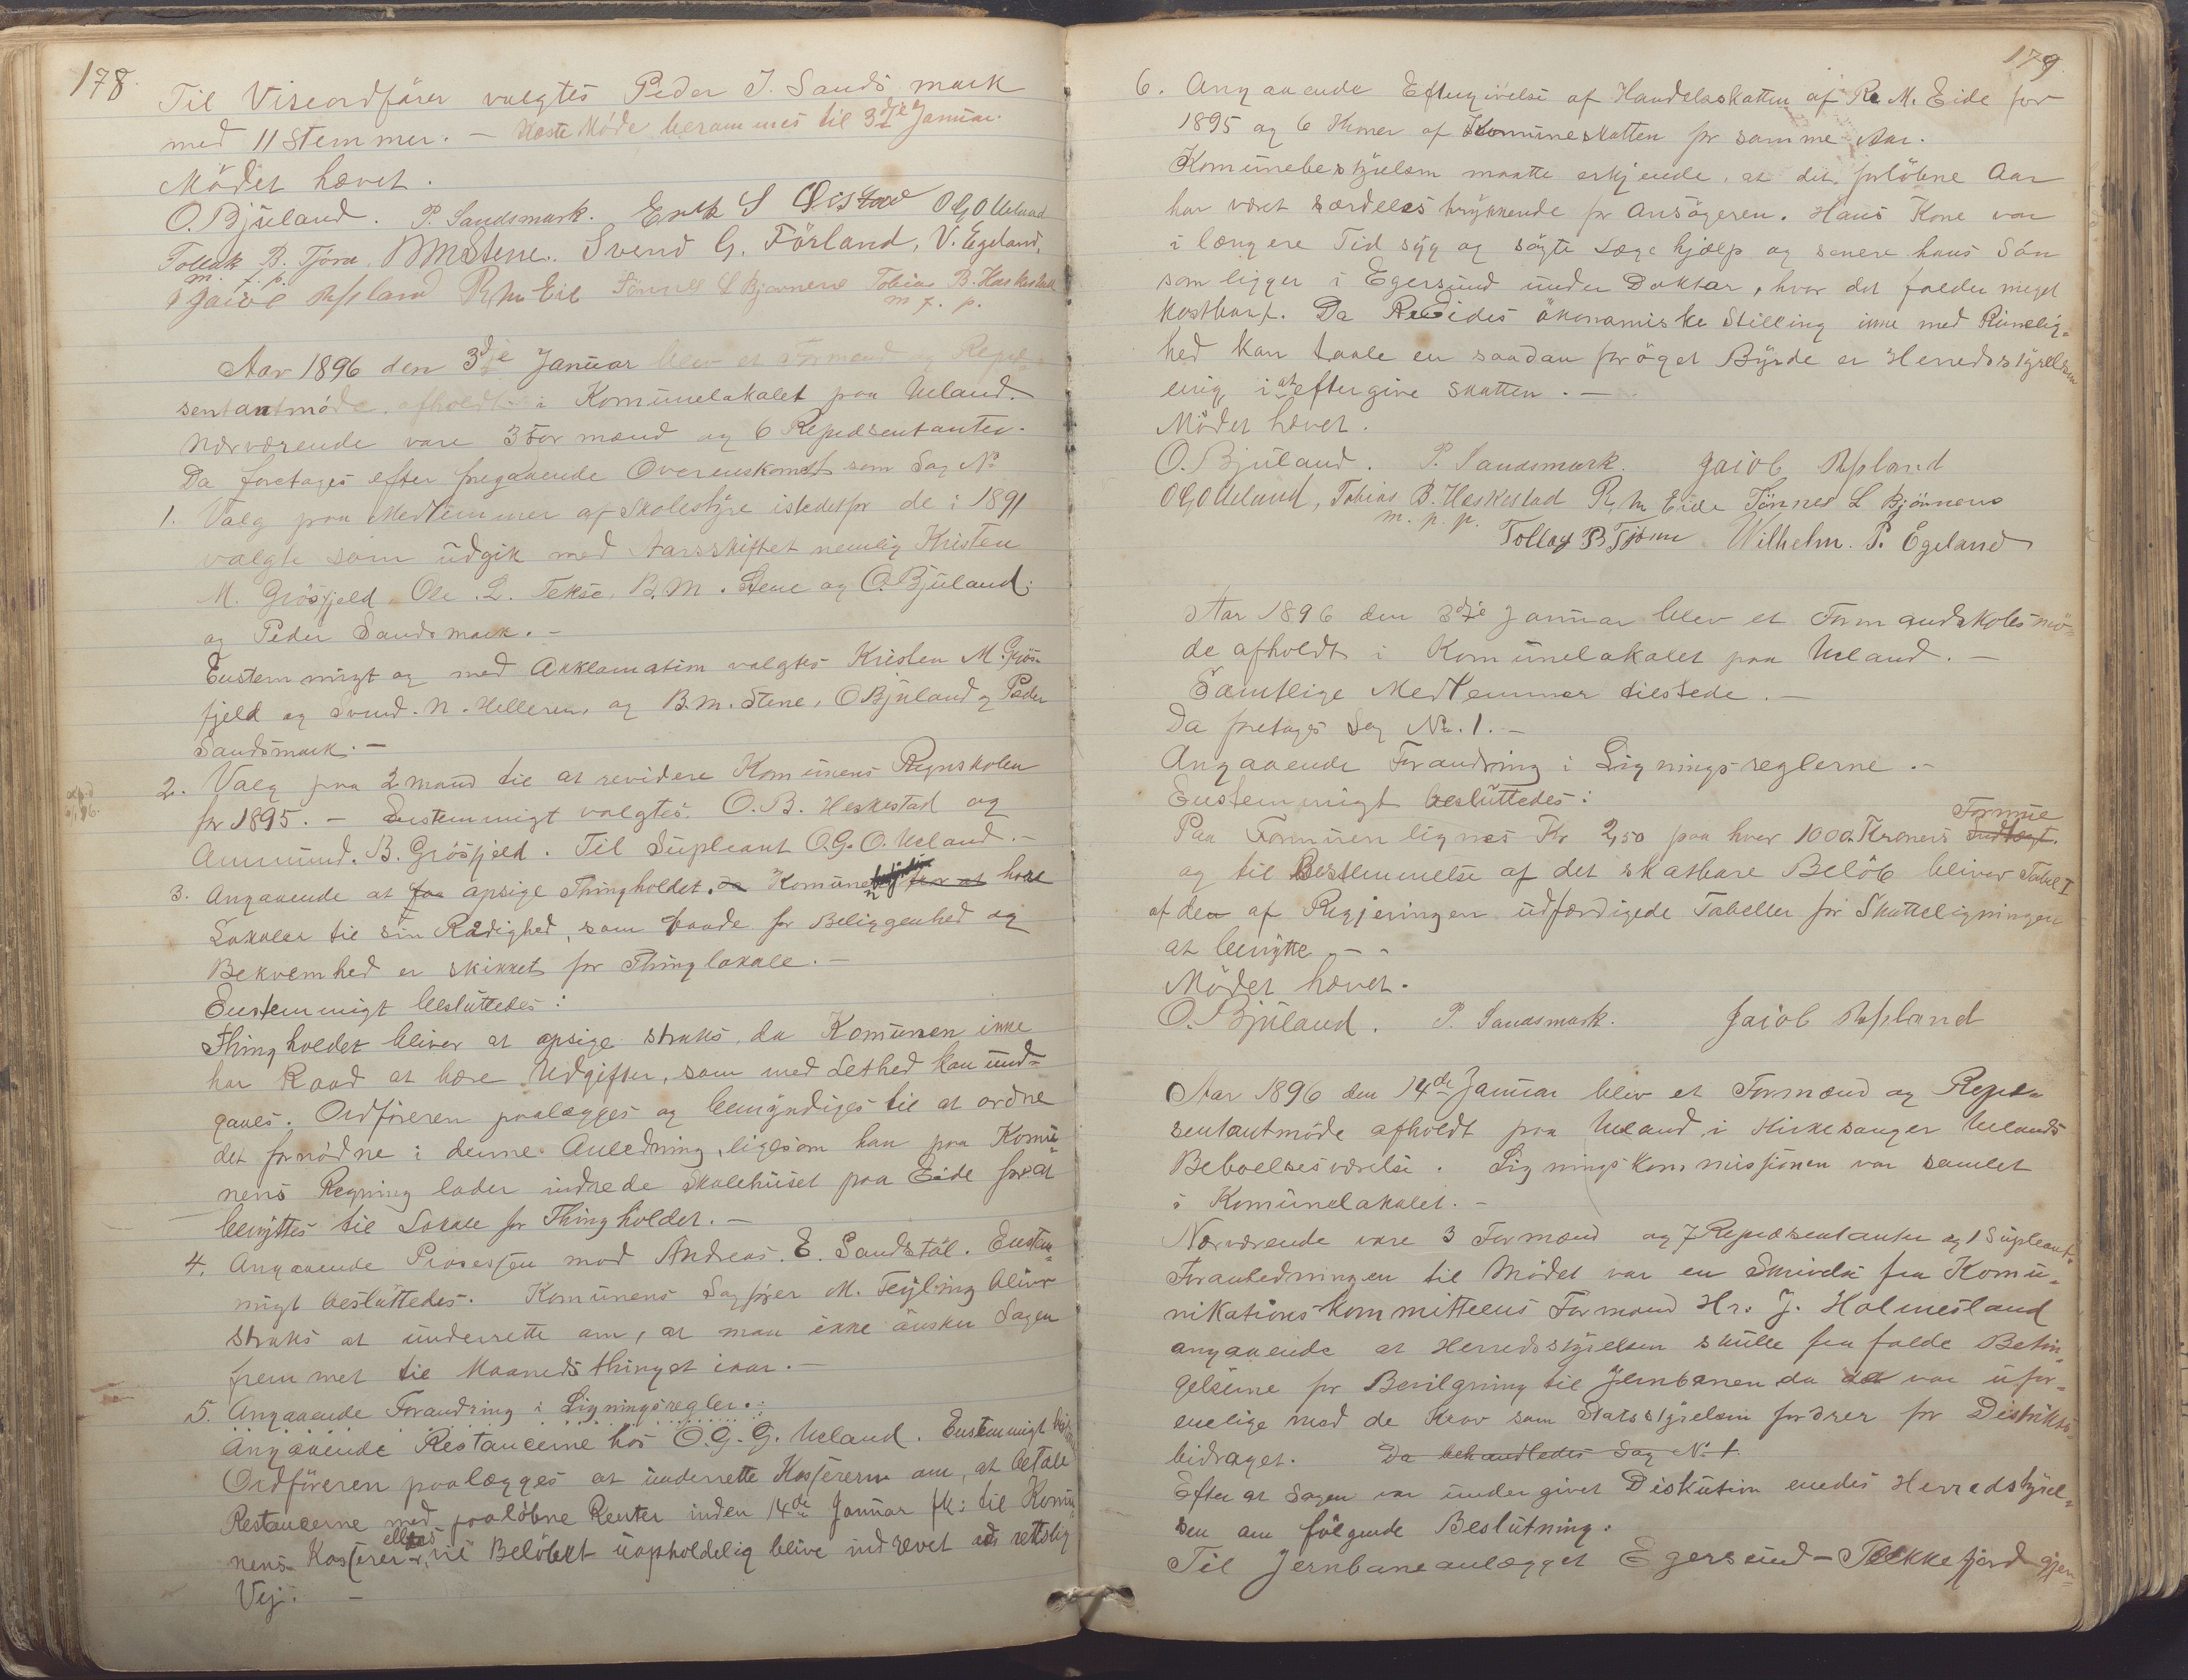 178.
Til Viseordförer valgtes Peder T. Sandsmark
med 11 Stemmer. — Næste Möde berammes til 3die Januar.
Mödet hævet.
O. Bjuland. P. Sandsmark. Erik S O G O Ueland
Tollak B. Tjörn. B M Stene. Svend G. Förland, V. Egeland,
m. f. p.
Jaiob Refsland R. M. Eide Tönnes L Bjönnes Tobias B. Heskestad
m. f. p.
Aar 1896 den 3die Januar blev et Formænd og Repræ-
sentantmöde afholdt i Komunelokalet paa Ueland.
Nærværende vare 3 Formænd og 6 Repræsentanter.
Da foretoges efter foregaaende Overenskomst som Sag No
1. Valg paa Medlemmer af Skolestyre istedetfor de i 1891
valgte som udgik med Aarsskiftet nemlig Kristen
M. Grösfjeld, Ole L. Tekse, B. M. Stene og O. Bjuland
og Peder Sandsmark. —
Enstemmigt og med Akklamation valgtes Kristen M. Grös-
fjeld og Svend N. Helleren, og B. M. Stene, O Bjuland og Peder
Sandsmark. —
2. Valg paa 2 mand til at revidere Komunens Regnskaber
for 1895. — Enstemmigt valgtes. O. B. Heskestad og
Ammund. B. Grösfjeld. Til Supleant O. G. O. Ueland. —
3. Angaaende at faa opsige Thingholdet, da Komunen for at have
Lokaler til sin Raadighed, som baade for Beliggenhed og
Bekvemhed er skikket for Thinglokale. —
Enstemmigt besluttedes:
Thingholdet bliver at opsige straks, da Komunen ikke
har Raad at bære Udgifter, som med Lethed kan und-
gaaes. Ordföreren paalægges og bemyndiges til at ordne
det fornödne i denne Anledning, ligesom han paa Komu-
nens Regning lader indrede Skolehuset paa Eide for at
benyttes til Lokale for Thingholdet. —
4. Angaaende Prosessen mod Andreas. E. Sandstöl. Enstem-
migt besluttedes. Komunens Sagförer M. Feyling bliver
straks at underrette om, at man ikke önsker Sagen
fremmet til Maanedsthinget iaar. —
5. Angaaende Forandring i Ligningsregler.
Angaaende Restancerne hos O. G. G. Ueland. Enstemmigt
Ordföreren paalægges at underrette Kassereren om, at betale
Restancerne med paalöbne Renter inden 14de Januar fk: til Komu-
nens Kasserer, ellers vil Belöbet uopholdelig blive indrevet ad rettslig
Vej. —
179.
6. Angaaende Eftergivelse af Handelsskatten af R. M. Eide for
1895 og 6 Kroner af Komuneskatten for samme Aar.
Komunebestyrelsen maatte erkjende, at det forlöbne Aar
har været særdeles trykkende for Ansögeren. Hans Kone var
i længere Tid syg og sögte Lægehjælp og senere hans Sön
som ligger i Egersund under Doktor, hvor det falder meget
kostbart. Da R Eides ökonomiske Stilling ikke med Rimelig-
hed kan taale en saadan foröget Byrde er Herredsstyrelsen
enig i at eftergive Skatten. —
Mödet hævet.
O. Bjuland. P. Sandsmark. Jaiob Refsland
O G O Ueland, Tobias B. Heskestad R. M. Eide Tönnes L Bjönnes
m. f. p.
Tollag B Tjörn Wilhelm. P. Egeland
Aar 1896 den 3die Januar blev et Formandskabsmö-
de afholdt i Komunelokalet paa Ueland. —
Samtlige Medlemmer tilstede. —
Da foretoges Sag No. 1. —
Angaaende Forandring i Ligningsreglerne. —
Enstemmigt besluttedes:
Paa Formuen lignes Kr 2,50 paa hver 1000 Kroners Indtægt. Formue
og til Bestemmelse af det skatbare Belöb bliver Tabel I
af den af Regjeringen udfærdigede Tabeller for Skatteligningen
at benytte. — —
Mödet hævet.
O. Bjuland. P. Sandsmark. Jaiob Refsland
Aar 1896 den 14de Januar blev et Formænd og Repræ-
sentantmöde afholdt paa Ueland i Kirkesanger Uelands
Beboelsesværelse. Ligningskommissionen var samlet
i Komunelokalet. —
Nærværende vare 3 Formænd og 7 Repræsentanter og 1 Supleant.
Foranledningen til Mödet var en Skrivelse fra Komu-
nikationskommitteens Formand Hr. J. Holmesland
angaaende at Herredsstyrelsen skulle frafalde Betin-
gelserne for Bevilgning til Jernbanen da det var ufor-
enelige med de Krav som Statsstyrelsen fordrer for Distrikts-
bidraget. Da behandledes Sag No 1.
Efter at Sagen var undergivet Diskution enedes Herredsstyrel-
sen om fölgende Beslutning.
Til Jernbaneanlægget Egersund—Flekkefjord gjen-